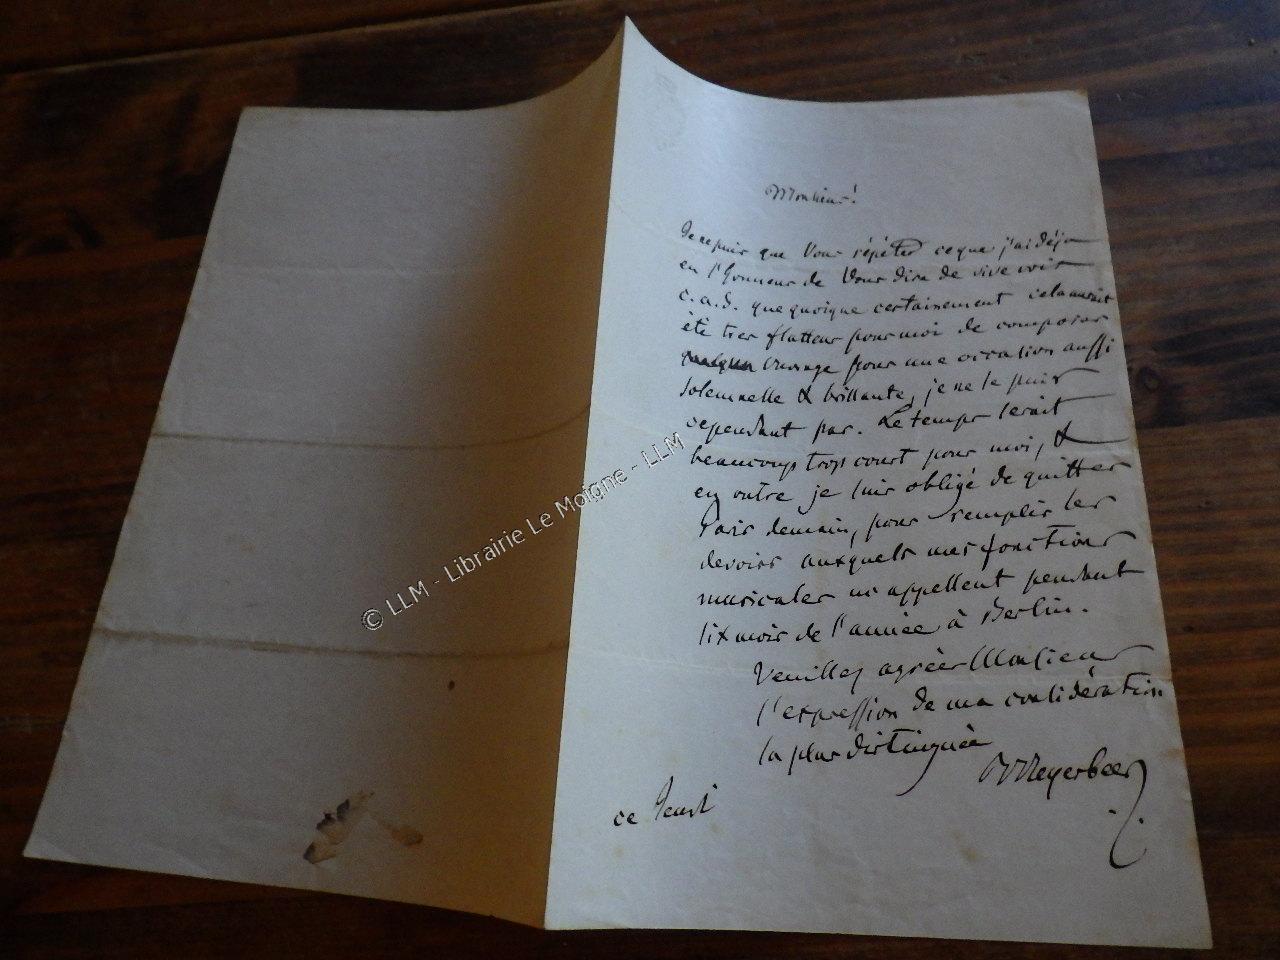 Monsieur!
Je ne puis que Vous répéter ce que j'ai déja
eu l'honneur de Vous dire de vive voix
c.a.d. que quoique certainement cela aurait
été tres flatteur pour moi de composer
ouvrage pour une occasion aussi
solemnelle & brillante, je ne le puis
cependant pas. Le temps serait
beaucoup trop court pour moi, &
en outre je suis obligé de quitter
Paris demain, pour remplir les
devoirs auxquels mes fonctions
musicales m'appellent pendant
six mois de l'année à Berlin.
Veuillez agréer Monsieur
l'expression de ma considération
la plus distinguée
Meyerbeer
ce Jeudi
© LLM - Librairie Le Moigne - LLM